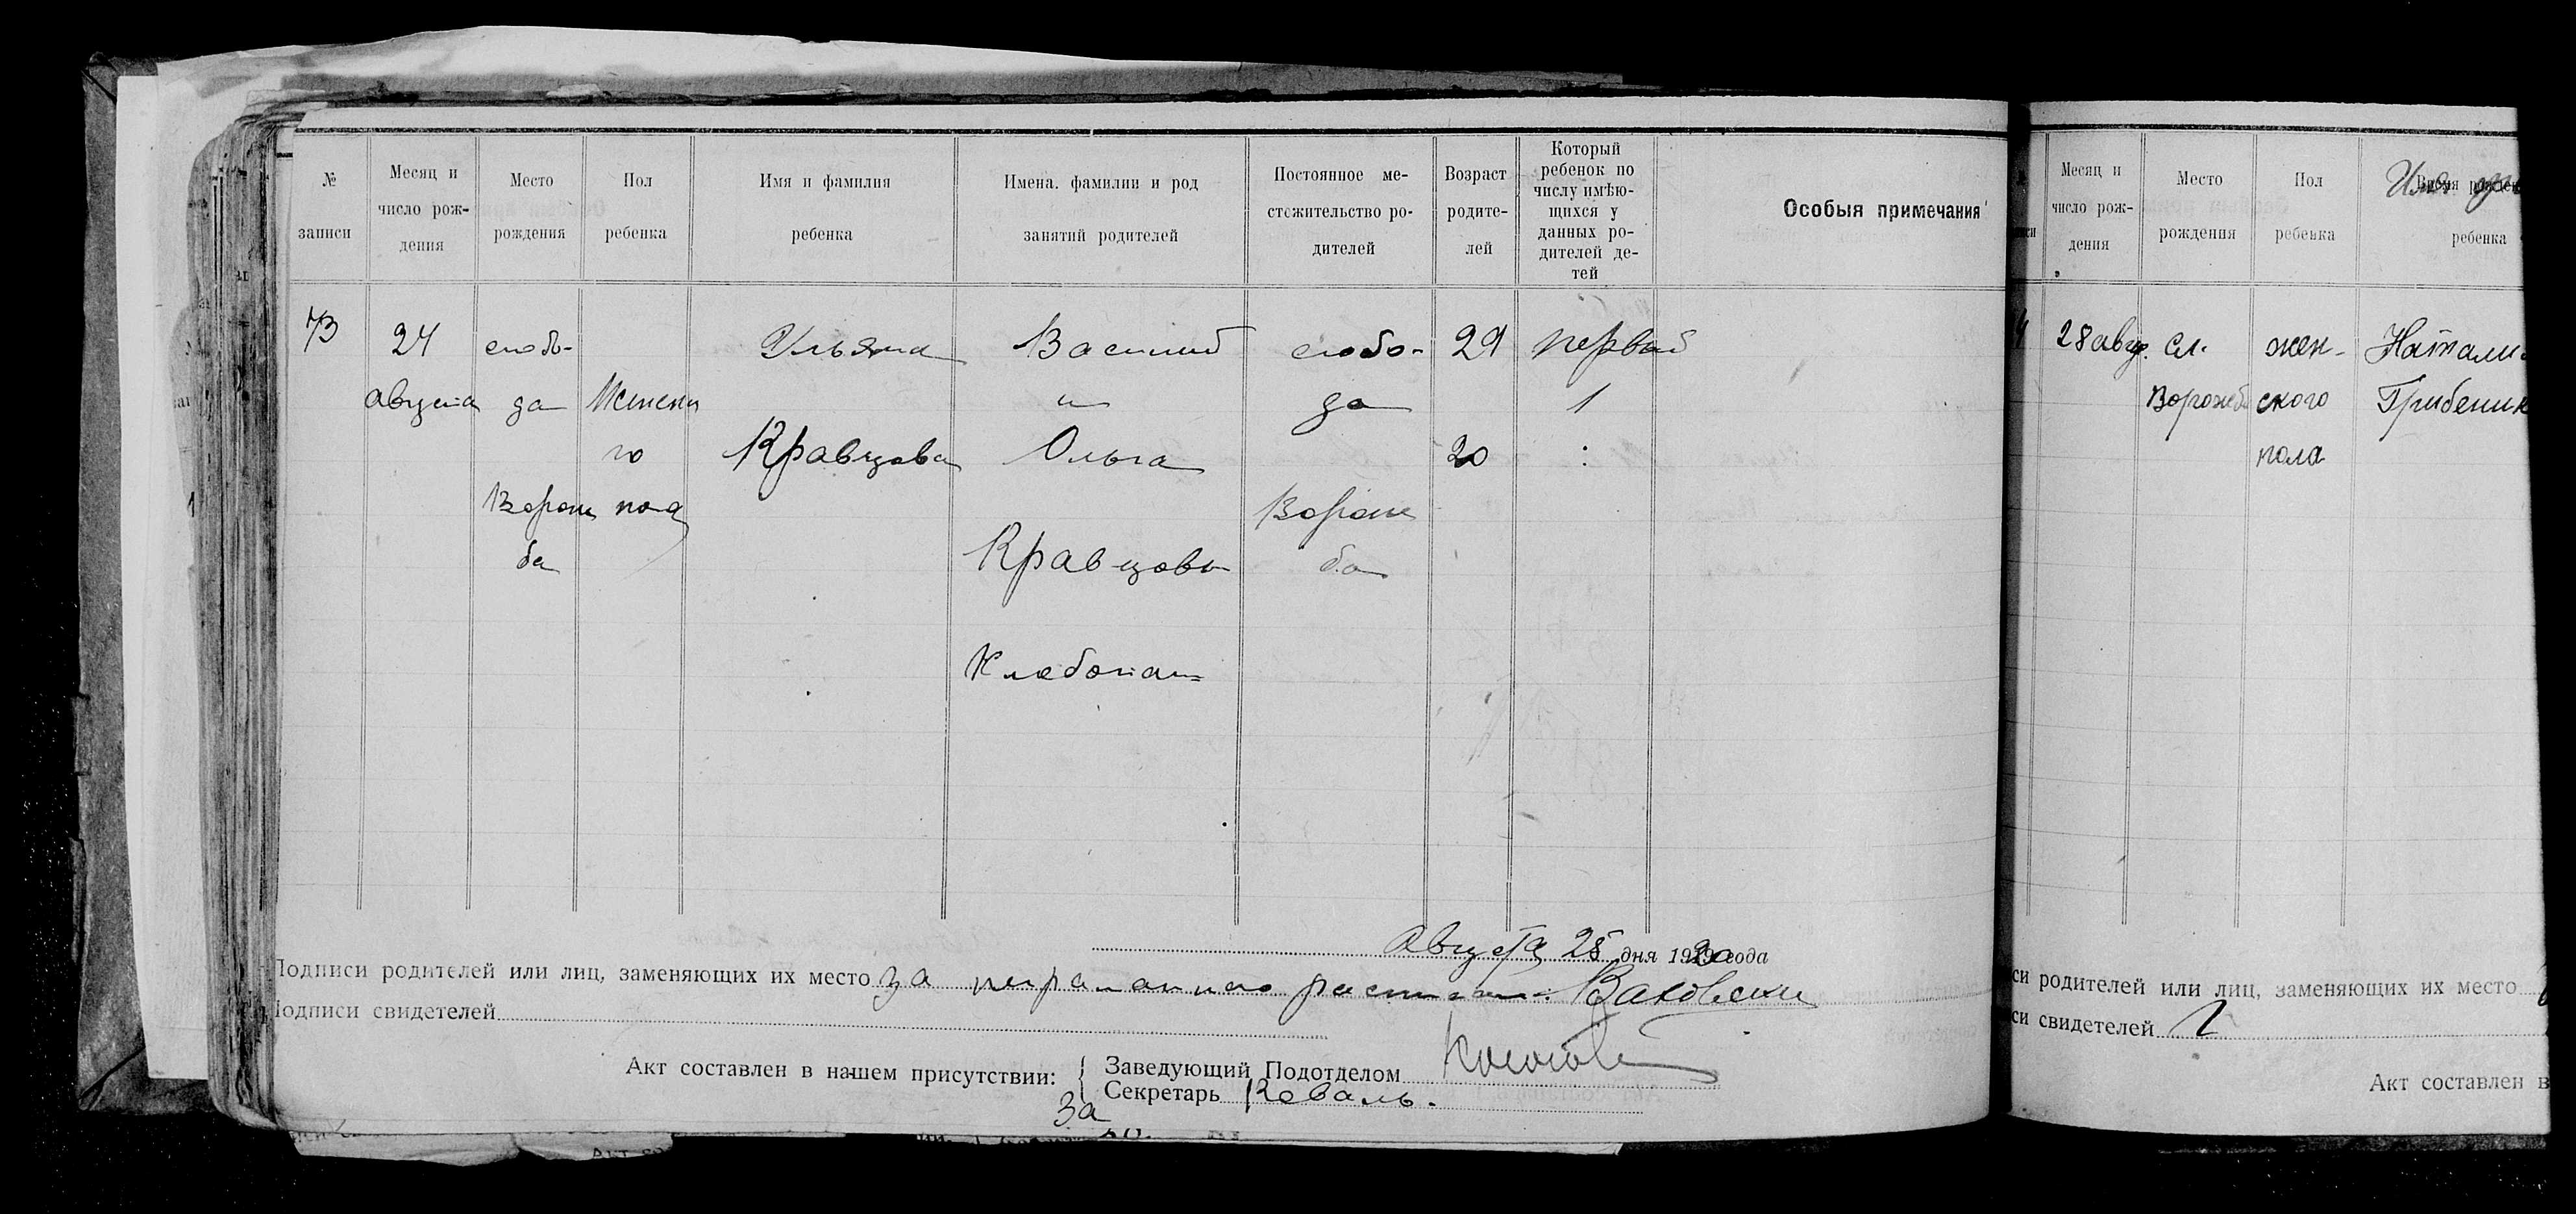 № записи
Месяц и число рождения
Место рождения
Пол ребенка
Имя и фамилия ребенка
Имена. фамилии и род занятий родителей
Постоянное местожительство родителей
Возраст родителей
Который ребенок по числу имѣющихся у данных родителей детей
Особыя примечания
73
24
августа
слобо-
да
Ворож
ба
Женск
го
пола
Ульяна
Кравцова
Василий
и
Ольга
Кравцовы
Хлебопаш=
слобо-
да
Ворож
ба
29
20
первый
1
Августа 25 дня 1920 года
Подписи родителей или лиц, заменяющих их место за неграмотного
Подписи свидетелей
Акт составлен в нашем присутствии:
Заведующий Подотделом
Секретарь Коваль.
За
Месяц и число рождения
Место рождения
Пол ребенка
ребенка
28 авг.
сл.
Ворожб
жен-
ского
пола
Натали
Грибеник
си родителей или лиц, заменяющих их место
си свидетелей
Акт составлен в